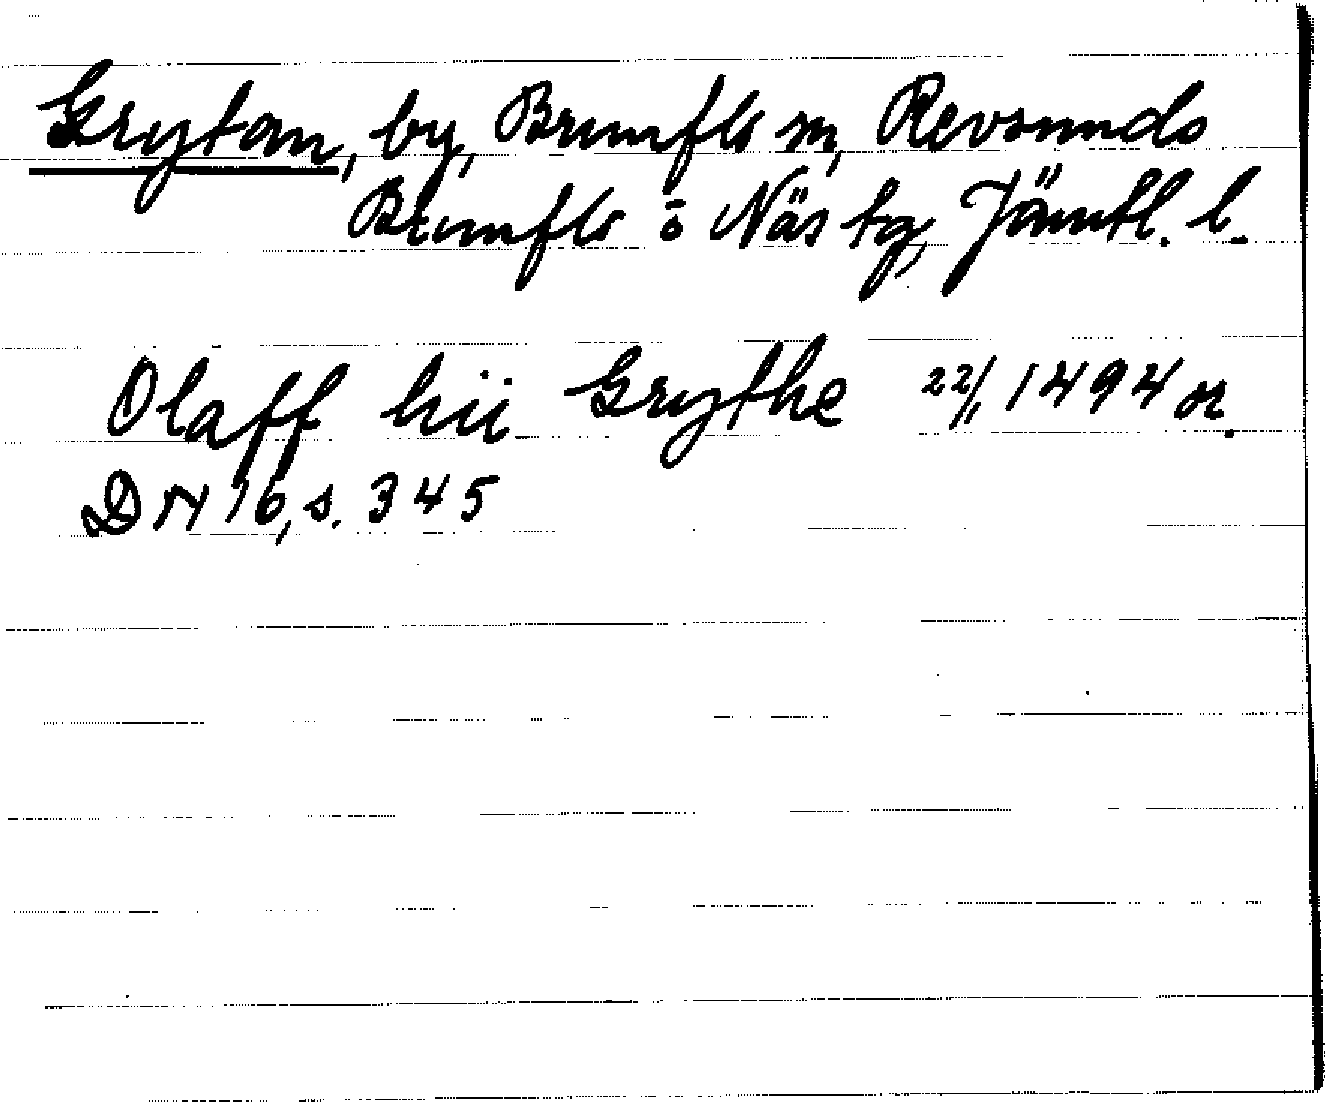 Grytan, by, Brunflo sn, Revsunds
Brunflo o Näs tg, Jämtl. l.
Olaff hii Grythe 22/1 1494 or.
DN 16, s. 345